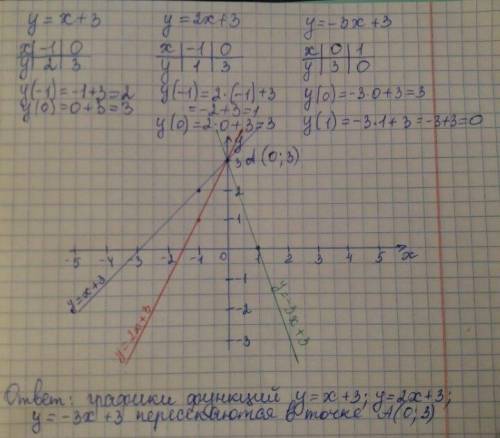 y = x+3   y = 2x+3   y = -3x+3
x | -1 | 0   x | -1 | 0   x | 0 | 1
y | 2 | 3   y | 1 | 3   y | 3 | 0
y(-1) = -1+3=2   y(-1) = 2·(-1)+3   y(0) = -3·0+3=3
y(0) = 0+3=3   = -2+3=1
y(0) = 2·0+3=3   y(1) = -3·1+3=-3+3=0
y
3 A(0;3)
2
1
-5 -4 -3 -2 -1 0 1 2 3 4 5 x
-1
-2
-3
y=x+3
y=2x+3
y=-3x+3
Ответ: графики функций y=x+3; y=2x+3;
y=-3x+3 пересекаются в точке A(0;3)